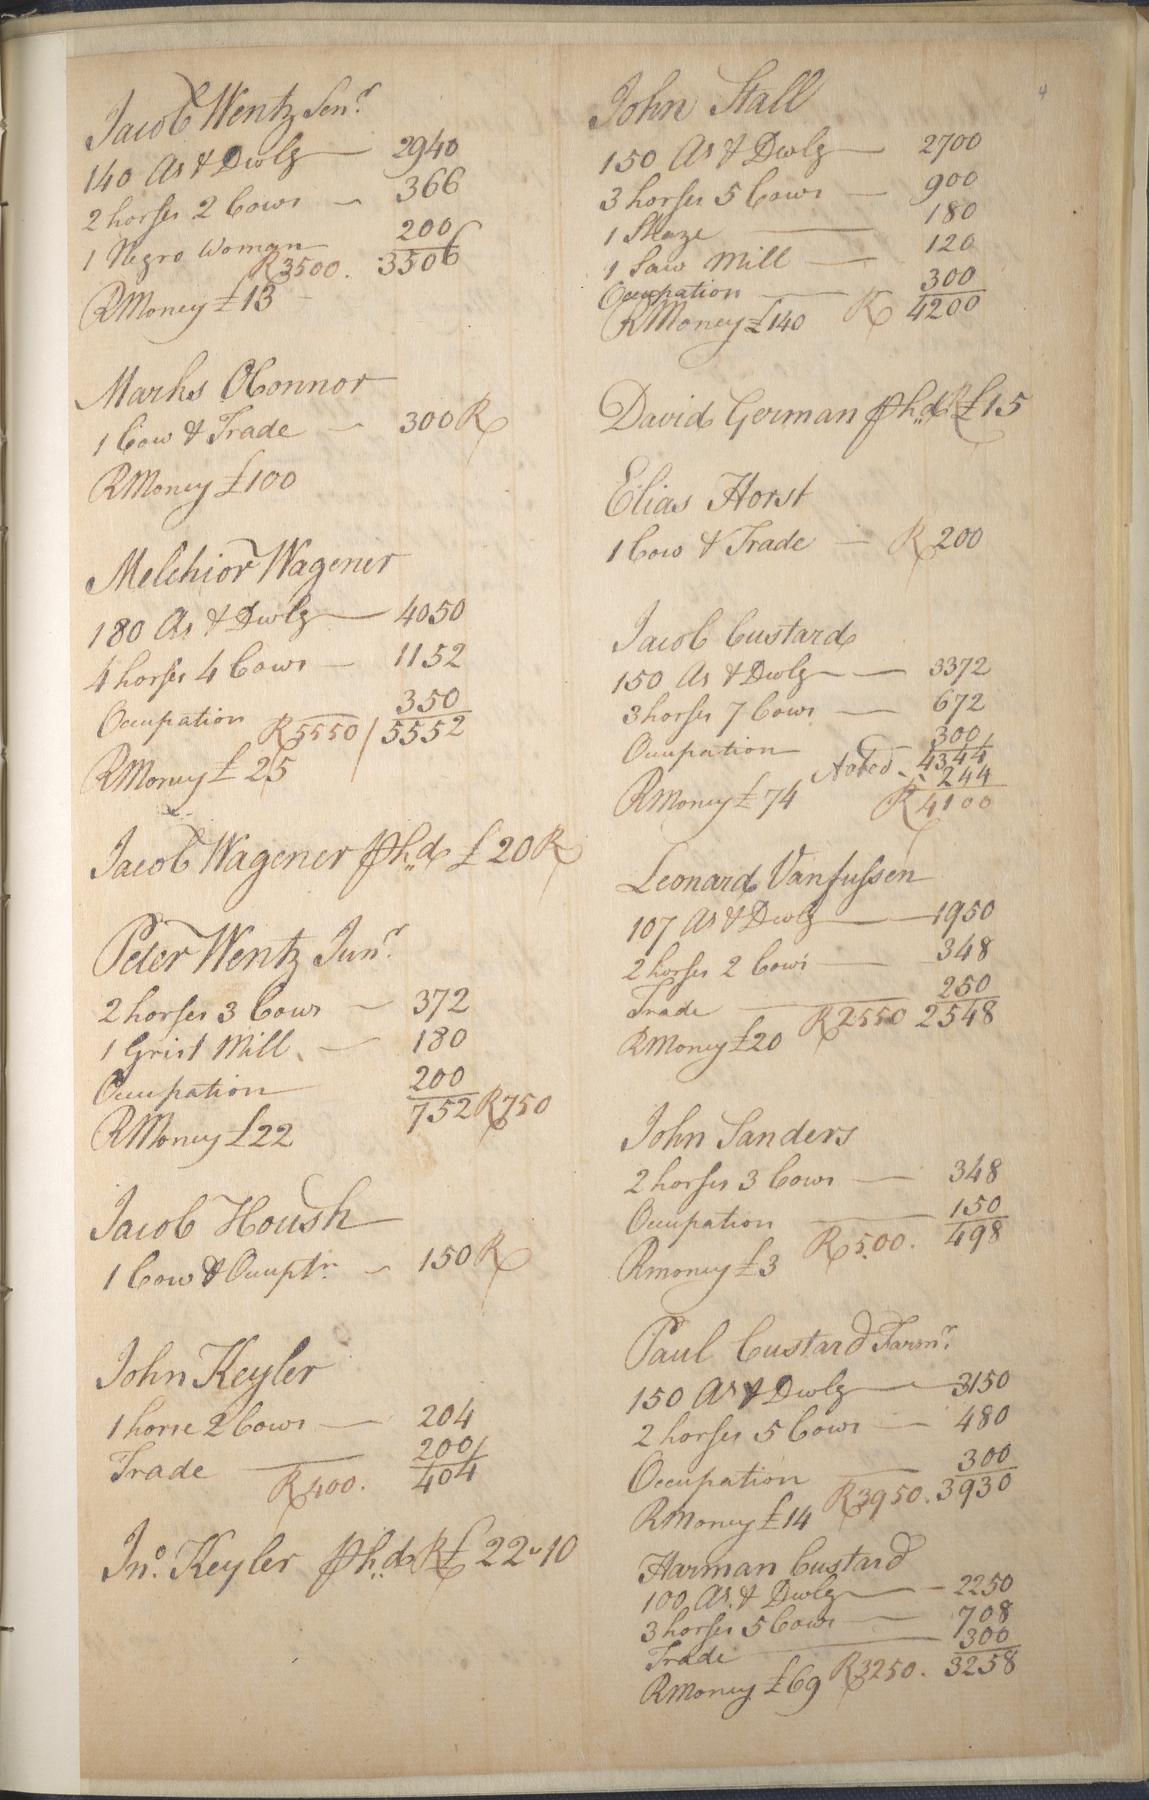 4
Jacob Wentz Senr
140 As & Dwlg — 2940
2 horses 2 Cows — 366
1 Negro Woman 200
R3500. 3506
RMoney £13
Marks OConnor
1 Cow & Trade — 300 R
RMoney £100
Melchior Wagener
180 As & Dwlg — 4050
4 horses 4 Cows — 1152
Occupation 350
R5550 / 5552
RMoney £25
Jacob Wagener ⅌ h.d £20 R
Peter Wentz Junr
2 horses 3 Cows — 372
1 Grist Mill — 180
Occupation 200
752 R750
RMoney £22
Jacob Housh
1 Cow & Occuptn — 150 R
John Keyler
1 horse 2 Cows — 204
Trade — 200
R400. 404
Jno. Keyler ⅌ h.d R £22"10
John Stall
150 As & Dwlg — 2700
3 horses 5 Cows — 900
1 180
1 Saw Mill — 120
Occupation — 300
RMoney £140 R 4200
David German ⅌ h.d R £15
Elias Horst
1 Cow & Trade — R 200
Jacob Custard
150 As & Dwlg — 3372
3 horses 7 Cows — 672
Occupation 300
4344
244
RMoney £74 R 4100
Leonard Vanfussen
107 As & Dwlg — 1950
2 horses 2 Cows — 348
Trade — 250
R2550 2548
RMoney £20
John Sanders
2 horses 3 Cows — 348
Occupation — 150
R500. 498
Rmoney £3
Paul Custard Farmr
150 As & Dwlg — 3150
2 horses 5 Cows — 480
Occupation — 300
RMoney £14 R3950. 3930
Harman Custard
100 As & Dwlg — 2250
3 horses 5 Cows — 708
Trade — 300
RMoney £69 R3250. 3258